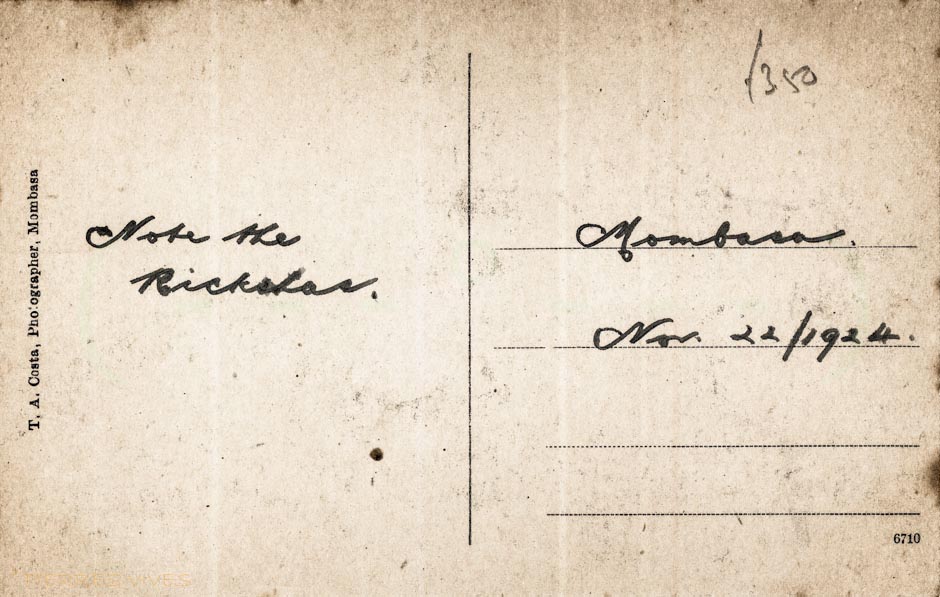 /350
T. A. Costa, Photographer, Mombasa
Note the
Rickshas.
Mombasa.
Nov. 22/1924.
6710